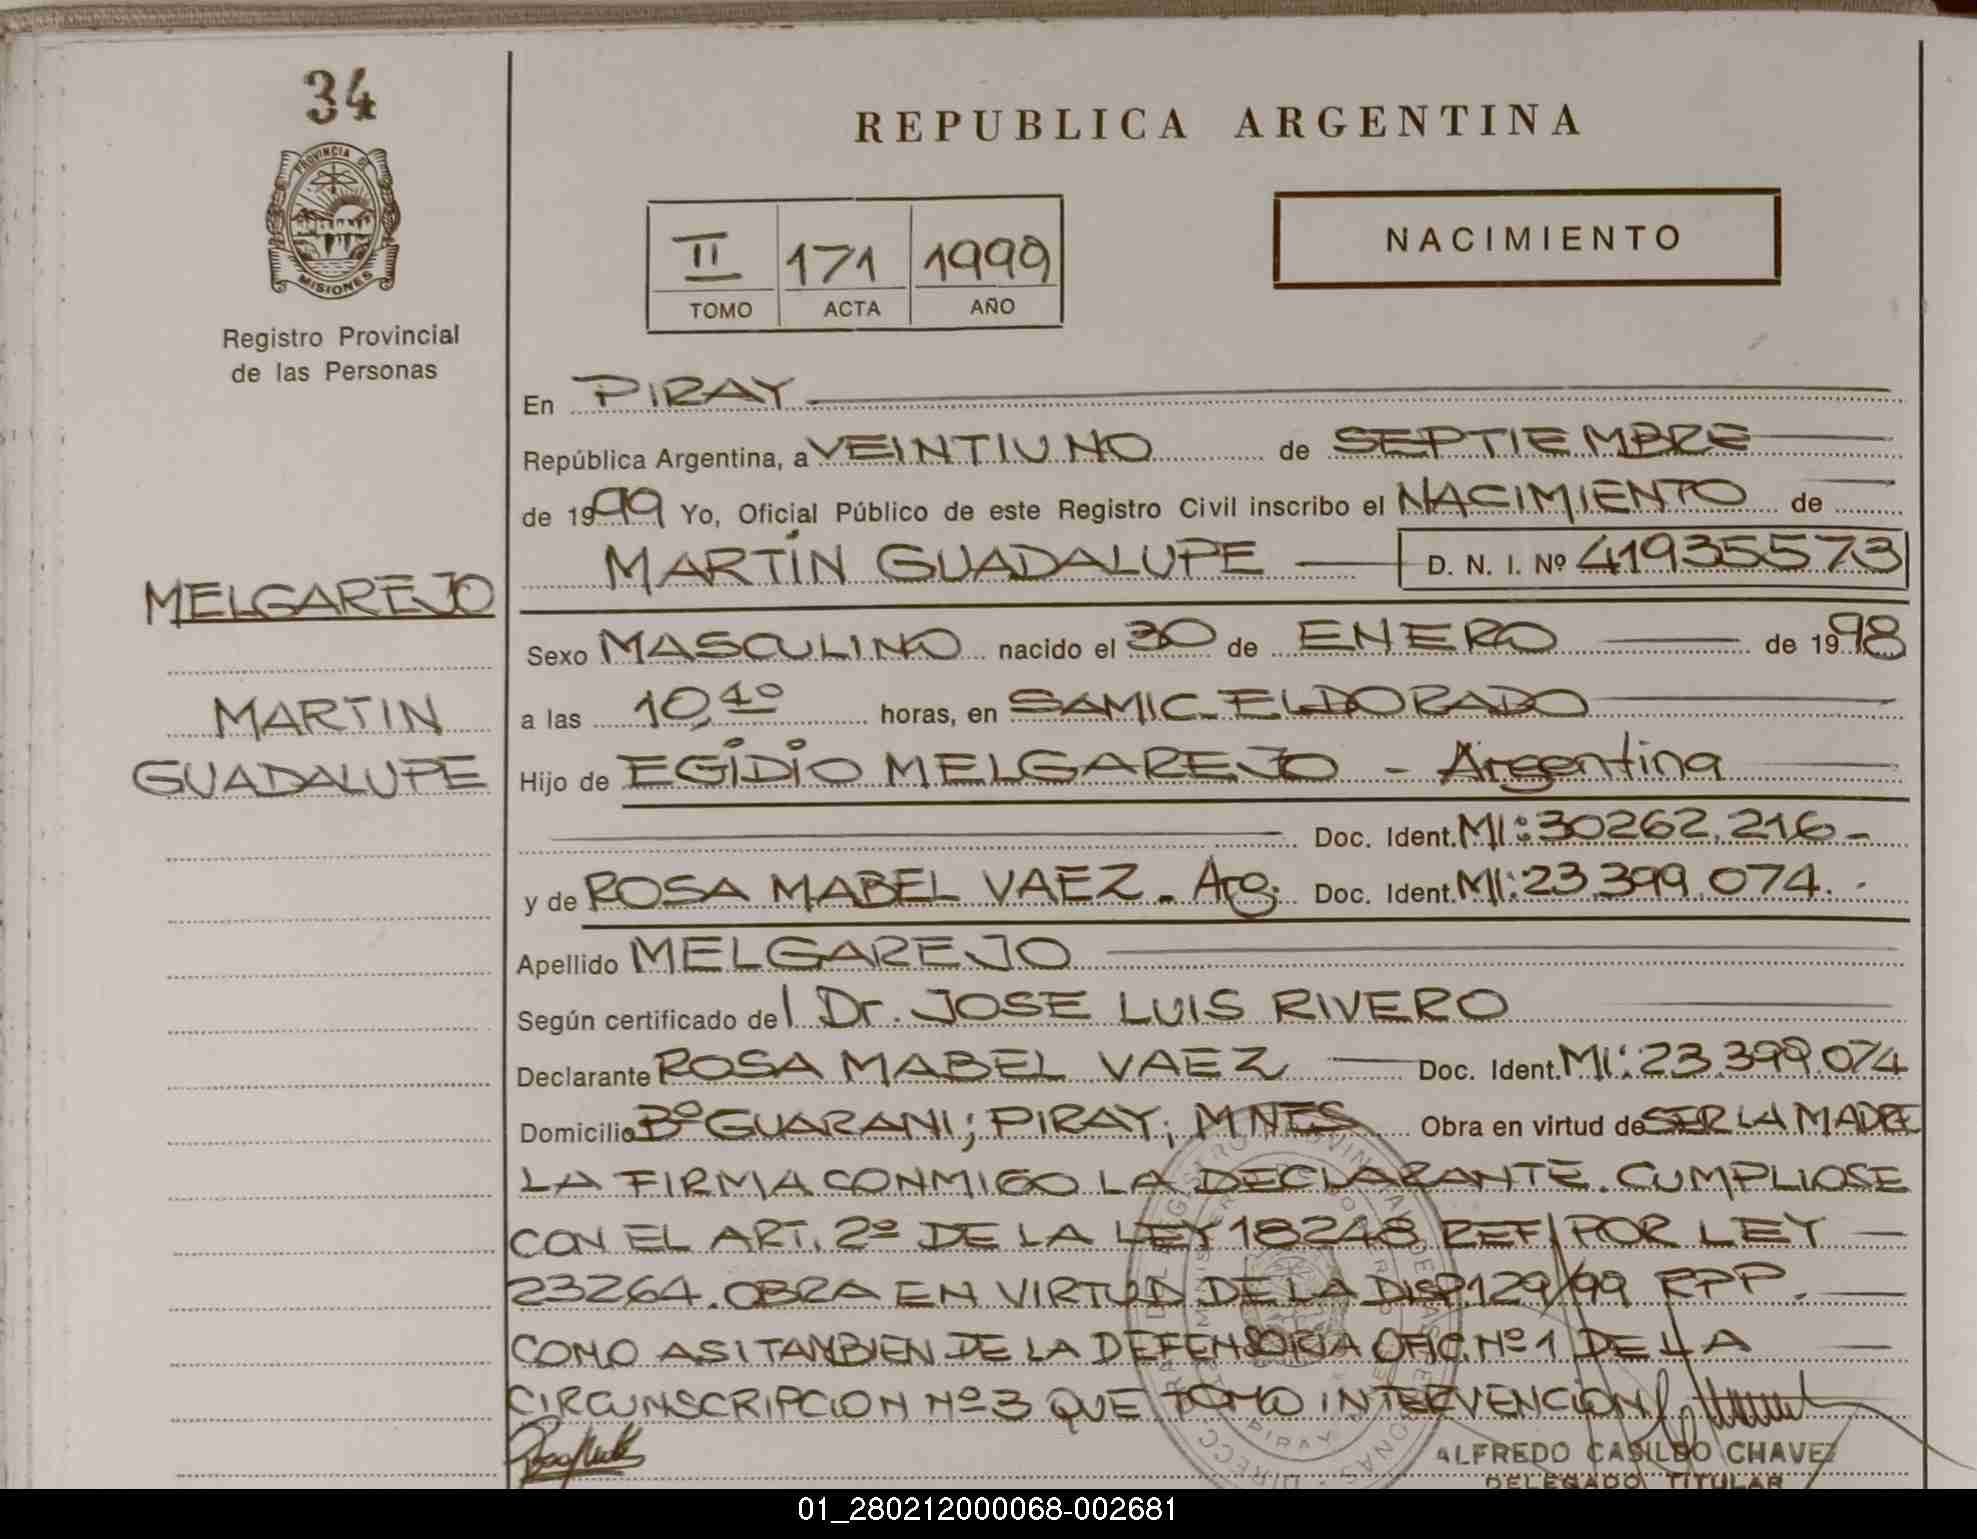 34
PROVINCIA DE
MISIONES
Registro Provincial
de las Personas
MELGAREJO
MARTIN
GUADALUPE
REPUBLICA ARGENTINA
II 171 1999
TOMO ACTA AÑO
NACIMIENTO
En PIRAY
República Argentina, a VEINTIUNO de SEPTIEMBRE
de 1999 Yo, Oficial Público de este Registro Civil inscribo el NACIMIENTO de
MARTÍN GUADALUPE D. N. I. Nº 41935573
Sexo MASCULINO nacido el 30 de ENERO de 1998
a las 10,40 horas, en SAMIC-ELDORADO
Hijo de EGIDIO MELGAREJO - Argentina
Doc. Ident. MI: 30262.216-
y de ROSA MABEL VAEZ - Arg. Doc. Ident. MI: 23.399.074. -
Apellido MELGAREJO
Según certificado del Dr. JOSE LUIS RIVERO
Declarante ROSA MABEL VAEZ Doc. Ident. MI: 23.399.074
Domicilio Bº GUARANI; PIRAY; MNES Obra en virtud de SER LA MADRE
LA FIRMA CONMIGO LA DECLARANTE. CUMPLIOSE
CON EL ART. 2º DE LA LEY 18248 REF/POR LEY
23264. OBRA EN VIRTUD DE LA DISP.129/99 RPP.
COMO ASI TAMBIEN DE LA DEFENSORIA OFIC. Nº 1 DE LA
CIRCUNSCRIPCION Nº 3 QUE TOMO INTERVENCION
PIRAY
ALFREDO CASILDO CHAVEZ
DELEGADO TITULAR
01_280212000068-002681